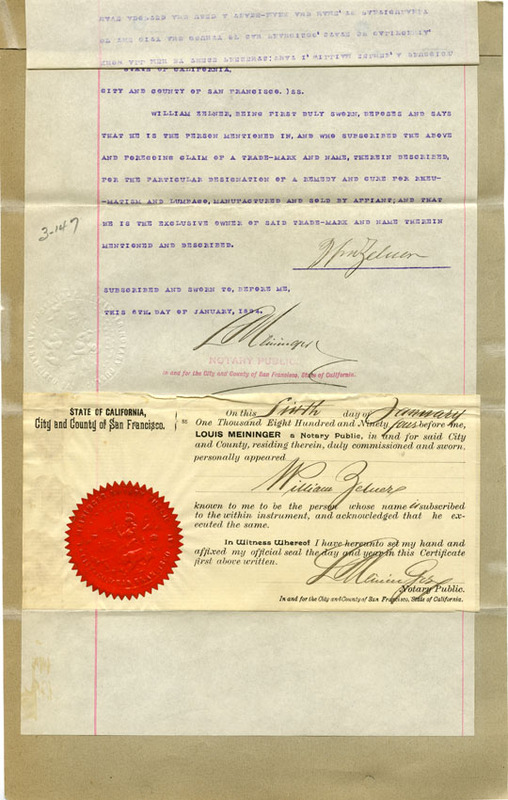 STATE OF CALIFORNIA,
CITY AND COUNTY OF SAN FRANCISCO. )SS.
WILLIAM ZELNER, BEING FIRST DULY SWORN, DEPOSES AND SAYS
THAT HE IS THE PERSON MENTIONED IN, AND WHO SUBSCRIBED THE ABOVE
AND FOREGOING CLAIM OF A TRADE-MARK AND NAME, THEREIN DESCRIBED,
FOR THE PARTICULAR DESIGNATION OF A REMEDY AND CURE FOR RHEU-
MATISM AND LUMBAGO, MANUFACTURED AND SOLD BY AFFIANT; AND THAT
HE IS THE EXCLUSIVE OWNER OF SAID TRADE-MARK AND NAME THEREIN
3-147
MENTIONED AND DESCRIBED.
Wm Zelner
SUBSCRIBED AND SWORN TO, BEFORE ME,
THIS 6TH. DAY OF JANUARY, 1894.
L Meininger
NOTARY PUBLIC
In and for the City and County of San Francisco, State of California.
STATE OF CALIFORNIA,
City and County of San Francisco. } ss
On this Sixth day of January
One Thousand Eight Hundred and Ninety four before me,
LOUIS MEININGER a Notary Public, in and for said City
and County, residing therein, duly commissioned and sworn,
personally appeared
William Zelner
known to me to be the person whose name is subscribed
to the within instrument, and acknowledged that he ex-
ecuted the same.
In Witness Whereof I have hereunto set my hand and
affixed my official seal the day and year in this Certificate
first above written.
L Meininger
Notary Public.
In and for the City and County of San Francisco, State of California.